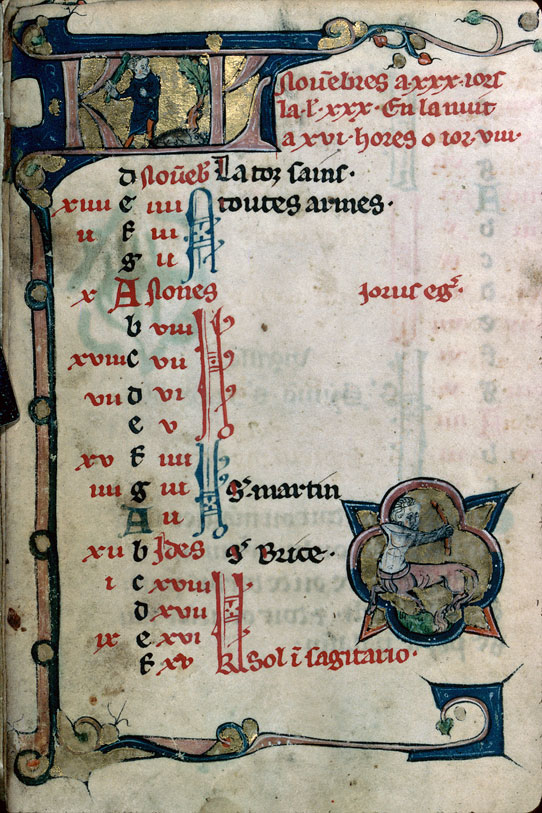 KL Novēbres a·xxx·iors
la·l'·xxx·En la nuit
a xvi·hores o ior·viii·
d Novēb' La toz sains·
xiii e iiii N toutes armes·
ii f iii
g ii
x A Nones
b viii
xviii c vii
vii d vi
e v
xv f iiii
iiii g iii S' martin
A ii
xii b Ides S' Brice·
i c xviii
d xvii
ix e xvi
f xv kl Sol ī sagitario·